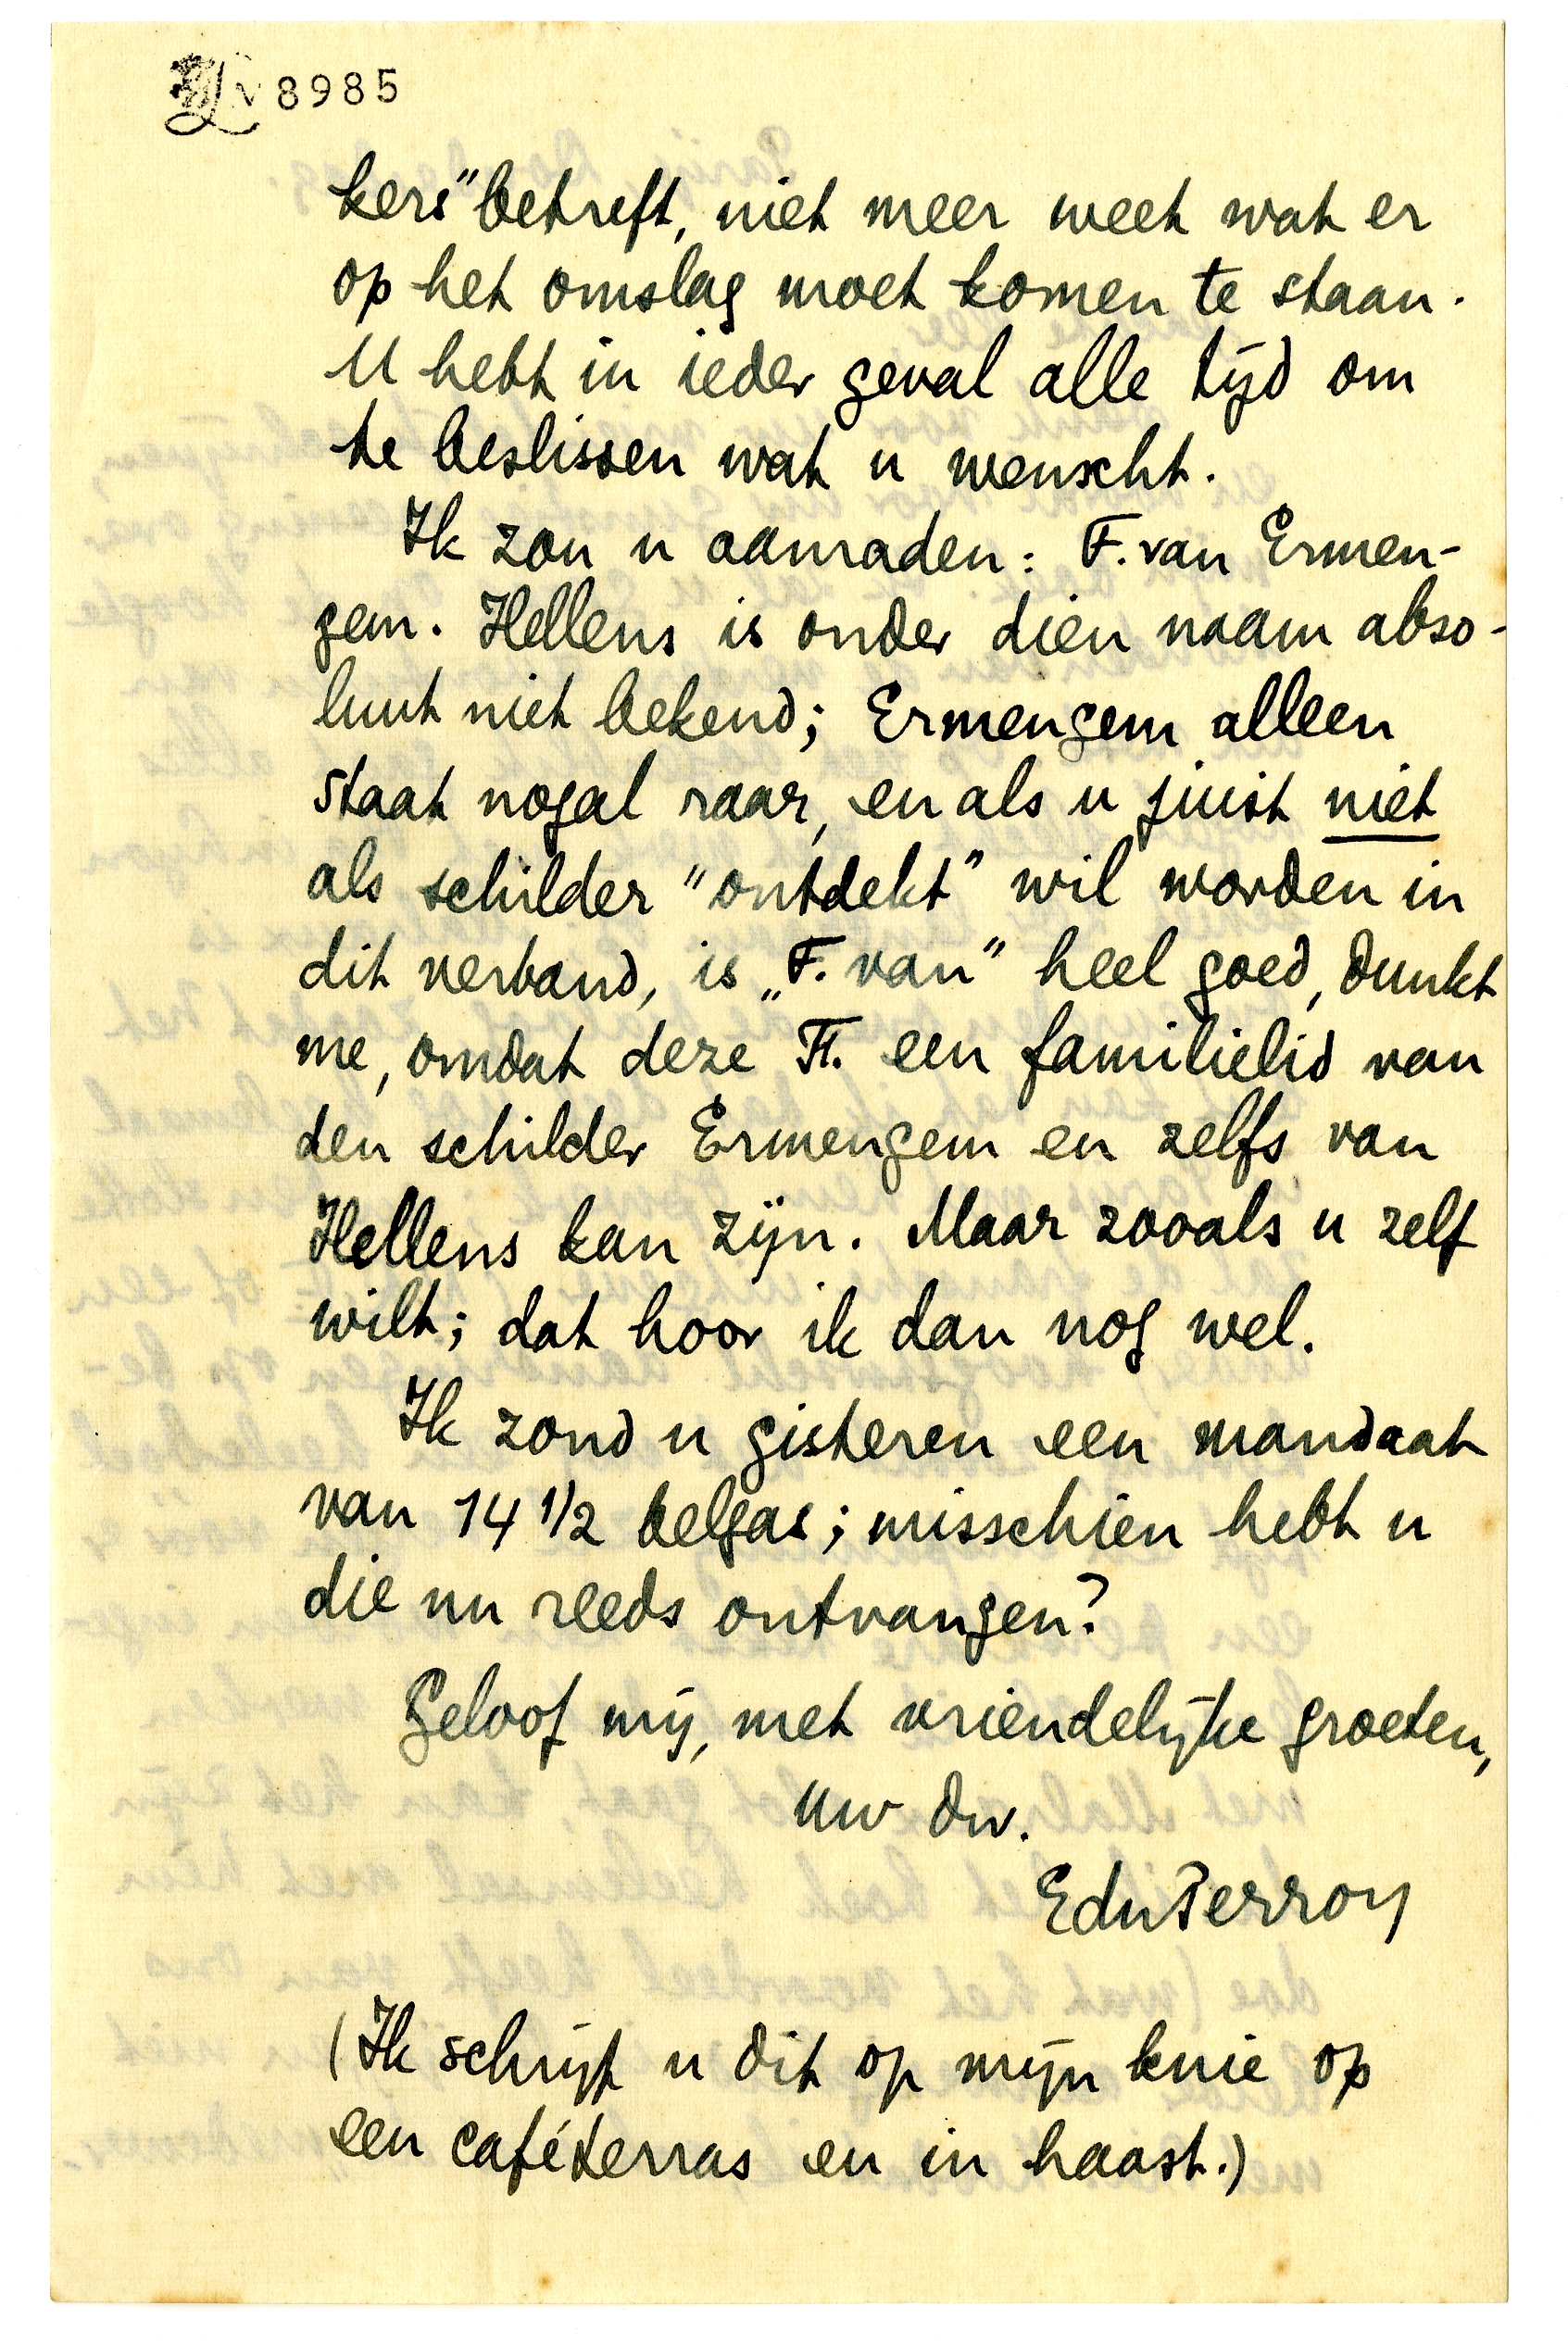 8985
kers" betreft, niet meer weet wat er
op het omslag moet komen te staan.
U hebt in ieder geval alle tijd om
te beslissen wat u wenscht.
Ik zou u aanraden: F. van Ermen-
gem. Hellens is onder dien naam abso-
luut niet bekend; Ermengem alleen
staat nogal raar, en als u juist niet
als schilder "ontdekt" wil worden in
dit verband, is „F. van" heel goed, dunkt
me, omdat deze F. een familielid van
den schilder Ermengem en zelfs van
Hellens kan zijn. Maar zooals u zelf
wilt; dat hoor ik dan nog wel.
Ik zond u gisteren een mandaat
van 14 1/2 belgas; misschien hebt u
die nu reeds ontvangen?
Geloof mij, met vriendelijke groeten,
Uw dw.
EduPerron
(Ik schrijf u dit op mijn knie op
een caféterras en in haast.)